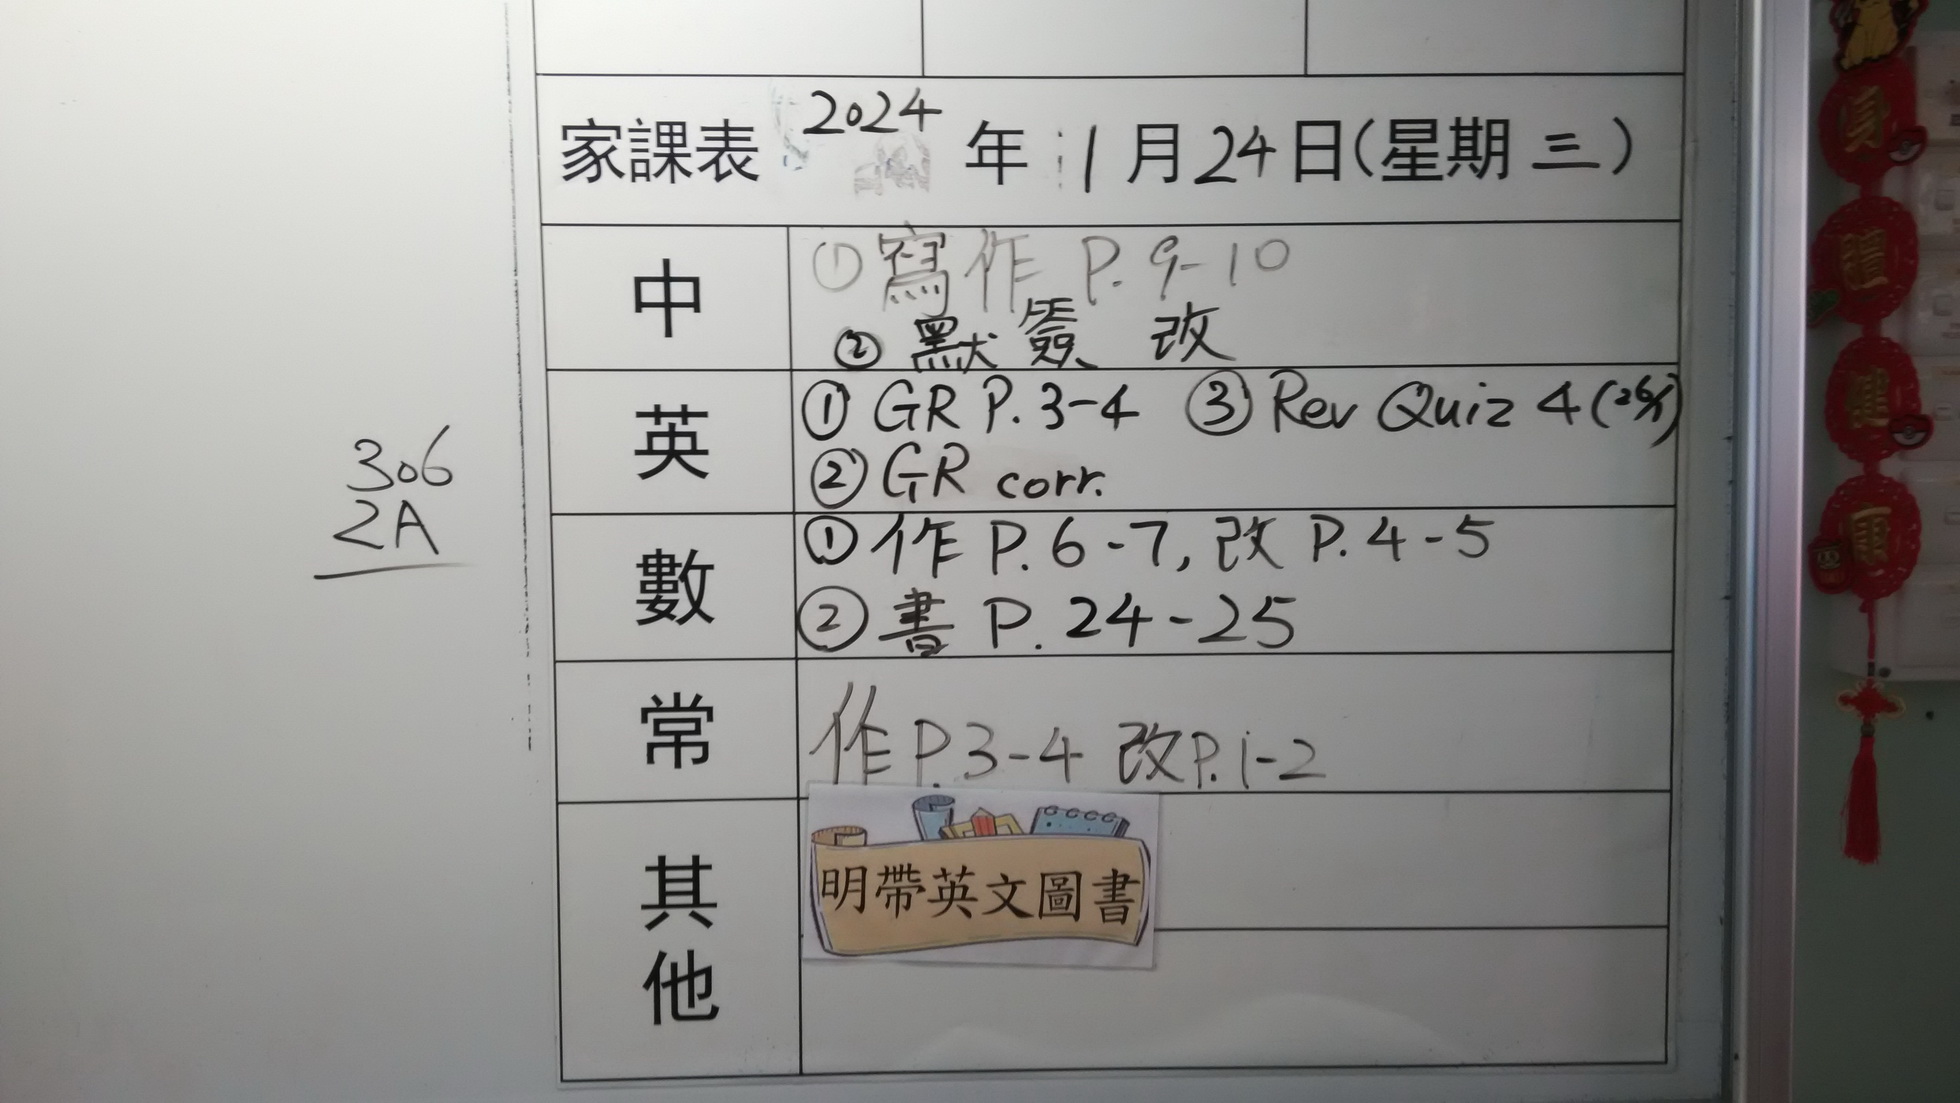 家課表 2024 年 1 月 24 日(星期 三)
中
① 寫作 P. 9-10
② 默簽 改
英
① GR P. 3-4 ③ Rev Quiz 4 (26/1)
② GR corr.
數
① 作 P. 6-7, 改 P. 4-5
② 書 P. 24-25
常
作 P. 3-4 改 P. 1-2
其他
明帶英文圖書
306
2A
身
體
健
康